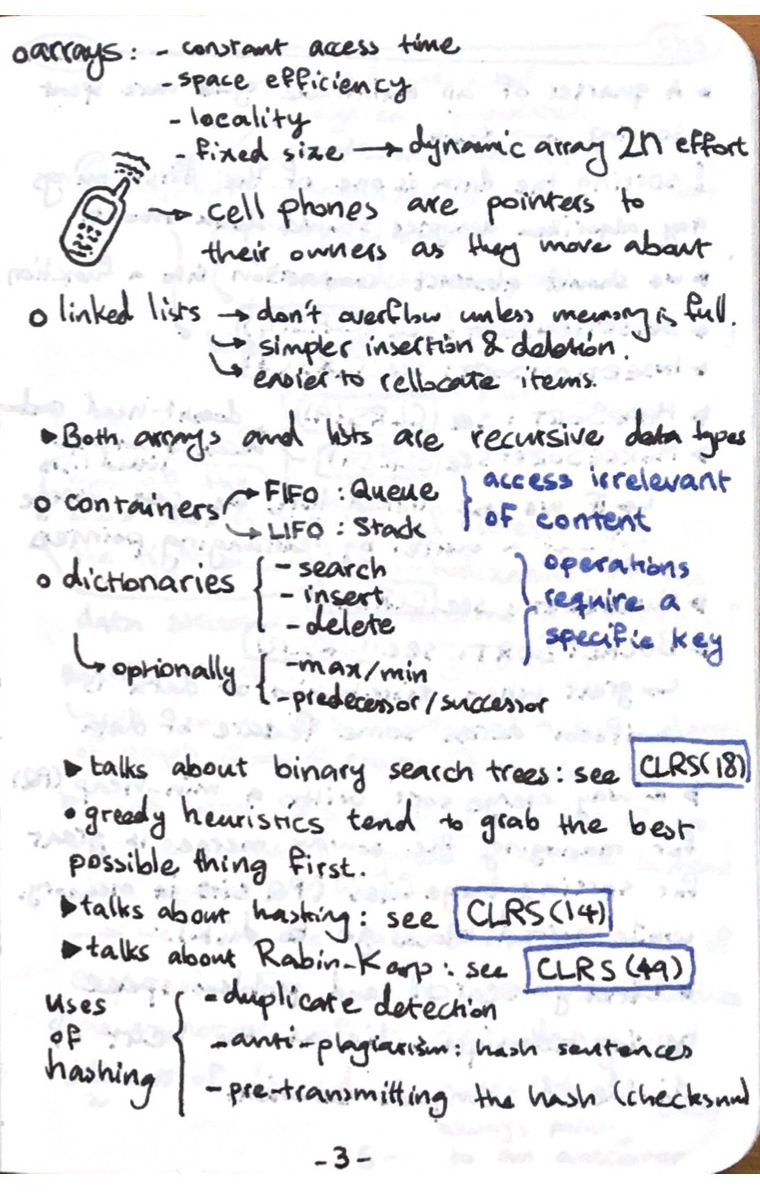 o arrays: - constant access time
- space efficiency
- locality
- fixed size → dynamic array 2n effort
→ cell phones are pointers to
their owners as they move about
o linked lists → don't overflow unless memory is full.
↳ simpler insertion & deletion.
↳ easier to rellocate items.
▸ Both arrays and lists are recursive data types
o containers → FIFO : Queue } access irrelevant
→ LIFO : Stack } of content
o dictionaries { - search } operations
- insert require a
- delete specific key
↳ optionally { - max/min
- predecessor/successor
▸ talks about binary search trees: see CLRS(18)
• greedy heuristics tend to grab the best
possible thing first.
▸ talks about hashing: see CLRS(14)
▸ talks about Rabin-Karp: see CLRS(49)
uses { - duplicate detection
of - anti-plagiarism: hash sentences
hashing - pre-transmitting the hash (checksum)
- 3 -